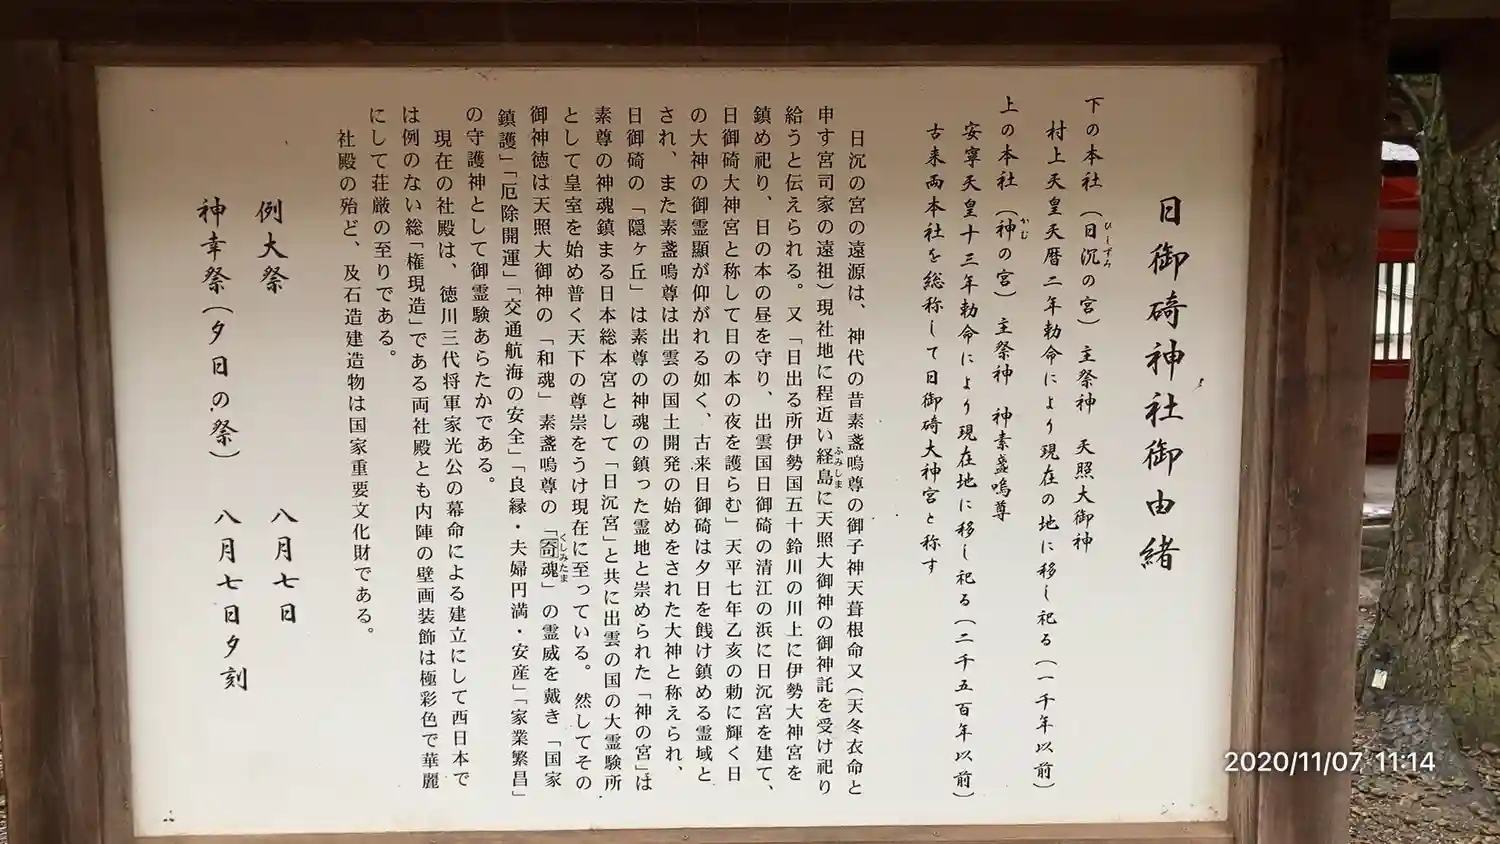 日御碕神社御由緒
下の本社（日沉の宮）　主祭神　天照大御神
ひしずみ
村上天皇天暦二年勅命により現在の地に移し祀る（一千年以前）
上の本社（神の宮）　主祭神　神素盞嗚尊
かむ
安寧天皇十三年勅命により現在地に移し祀る（二千五百年以前）
古来両本社を総称して日御碕大神宮と称す
日沉の宮の遠源は、神代の昔素盞嗚尊の御子神天葺根命又（天冬衣命と
申す宮司家の遠祖）現社地に程近い経島に天照大御神の御神託を受け祀り
ふみしま
給うと伝えられる。又「日出る所伊勢国五十鈴川の川上に伊勢大神宮を
鎮め祀り、日の本の昼を守り、出雲国日御碕の清江の浜に日沉宮を建て、
日御碕大神宮と称して日の本の夜を護らむ」天平七年乙亥の勅に輝く日
の大神の御霊顯が仰がれる如く、古来日御碕は夕日を餞け鎮める霊域と
され、また素盞嗚尊は出雲の国土開発の始めをされた大神と称えられ、
日御碕の「隠ヶ丘」は素尊の神魂の鎮った霊地と崇められた「神の宮」は
素尊の神魂鎮まる日本総本宮として「日沉宮」と共に出雲の国の大霊験所
として皇室を始め普く天下の尊崇をうけ現在に至っている。然してその
御神徳は天照大御神の「和魂」素盞嗚尊の「奇魂」の霊威を戴き「国家
くしみたま
鎮護」「厄除開運」「交通航海の安全」「良縁・夫婦円満・安産」「家業繁昌」
の守護神として御霊験あらたかである。
現在の社殿は、徳川三代将軍家光公の幕命による建立にして西日本で
は例のない総「権現造」である両社殿とも内陣の壁画装飾は極彩色で華麗
にして荘厳の至りである。
社殿の殆ど、及石造建造物は国家重要文化財である。
例大祭　八月七日
神幸祭（夕日の祭）　八月七日夕刻
2020/11/07 11:14